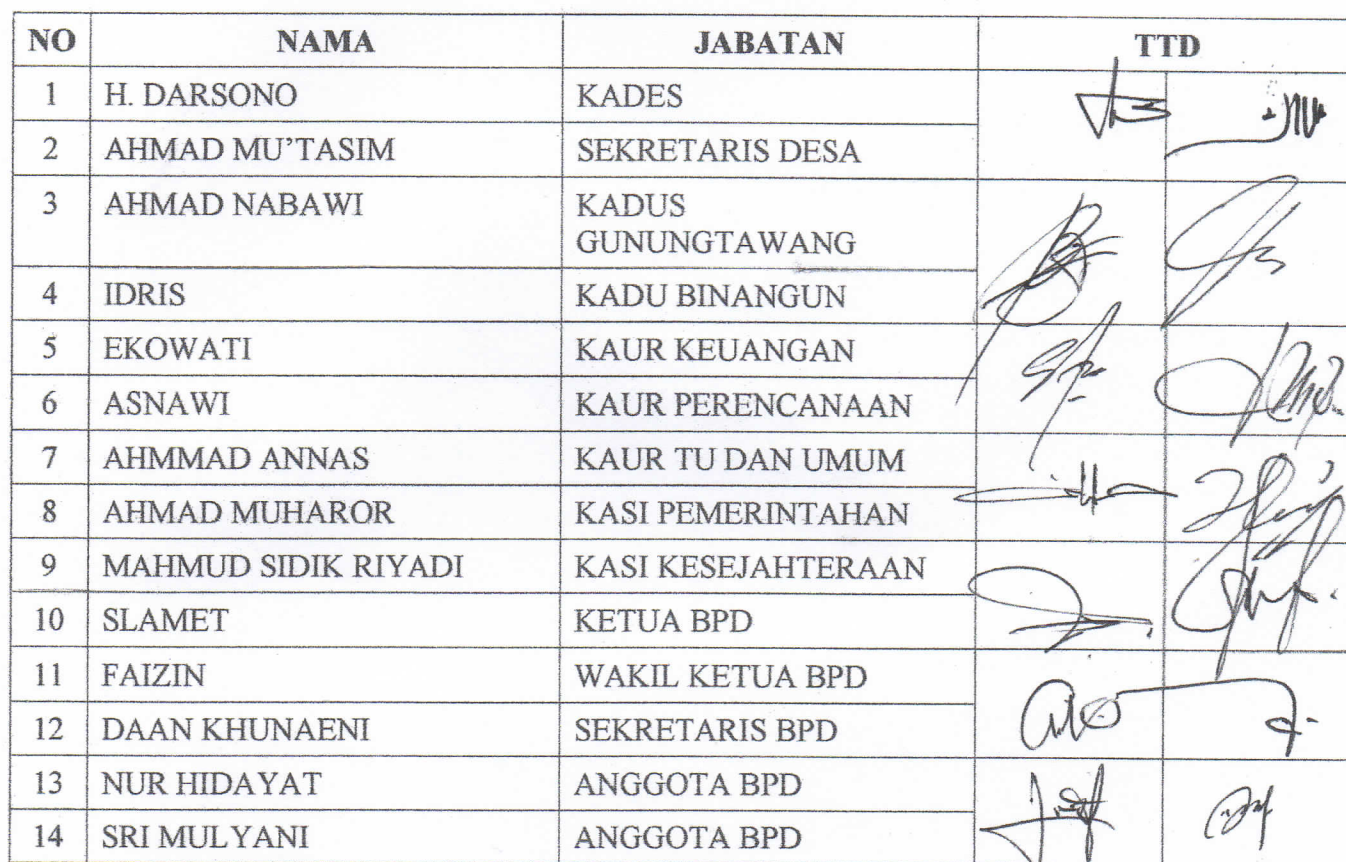 NO NAMA JABATAN TTD
1 H. DARSONO KADES
2 AHMAD MU’TASIM SEKRETARIS DESA
3 AHMAD NABAWI KADUS
GUNUNGTAWANG
4 IDRIS KADU BINANGUN
5 EKOWATI KAUR KEUANGAN
6 ASNAWI KAUR PERENCANAAN
7 AHMMAD ANNAS KAUR TU DAN UMUM
8 AHMAD MUHAROR KASI PEMERINTAHAN
9 MAHMUD SIDIK RIYADI KASI KESEJAHTERAAN
10 SLAMET KETUA BPD
11 FAIZIN WAKIL KETUA BPD
12 DAAN KHUNAENI SEKRETARIS BPD
13 NUR HIDAYAT ANGGOTA BPD
14 SRI MULYANI ANGGOTA BPD